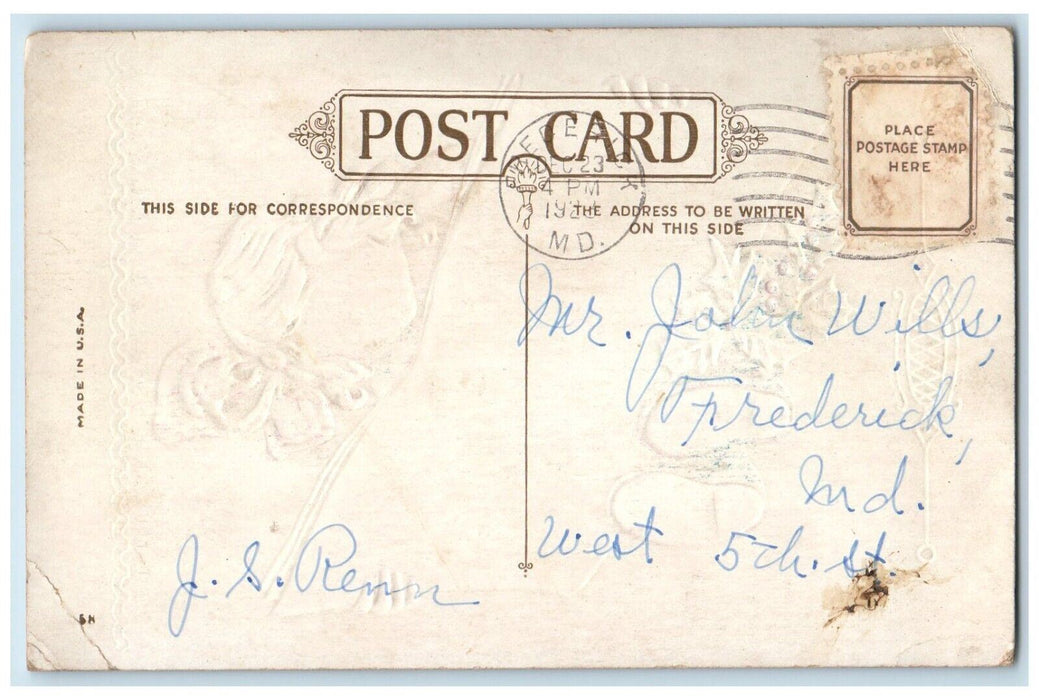 POST CARD
PLACE
POSTAGE STAMP
HERE
FREDERICK
DEC 23
4 PM
MD.
THIS SIDE FOR CORRESPONDENCE
THE ADDRESS TO BE WRITTEN
ON THIS SIDE
MADE IN U.S.A.
Mr. John Wills,
Frederick,
Md.
West 5th. st.
J. S. Renn
5M